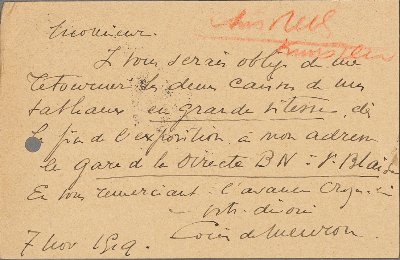 Monsieur.
Je vous serais obligé de me
retourner les deux caisses de mes
tableaux en grande vitesse, dès
la fin de l'exposition à mon adresse
la gare de la Directe BN : St. Blaise
En vous remerciant à l'avance
votre dévoué
Louis de Meuron.
7 nov 1919.